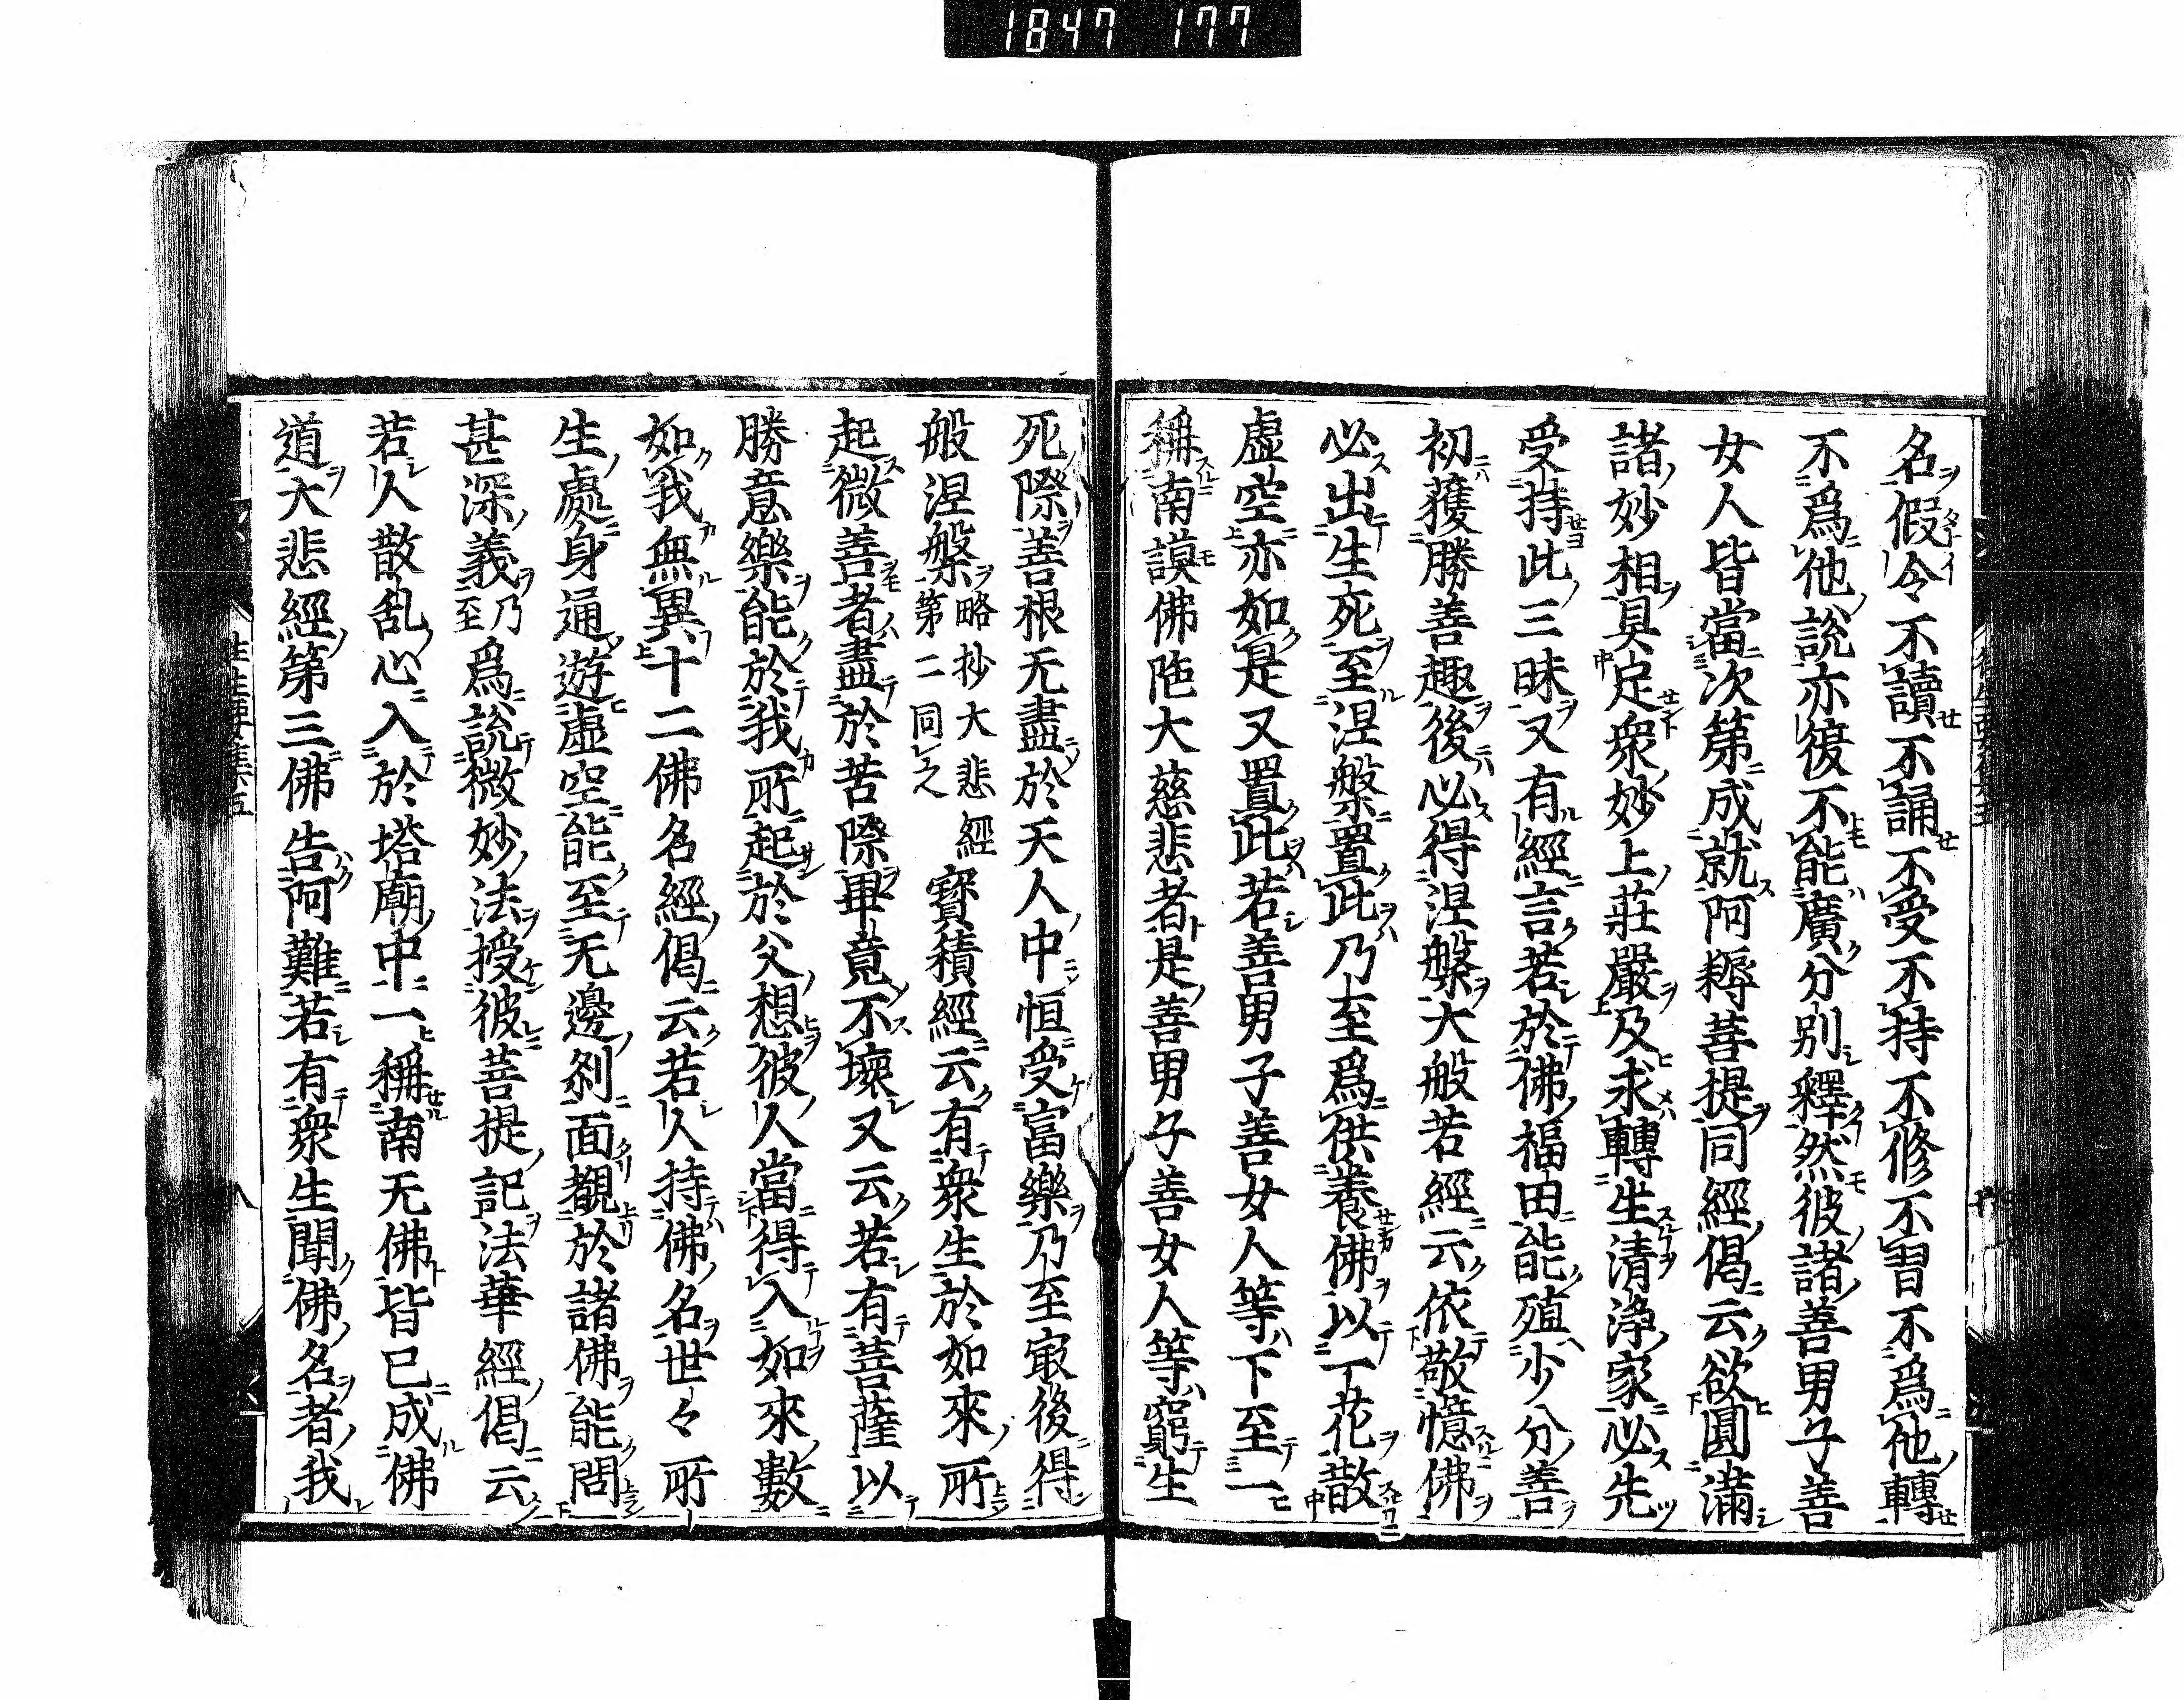 1847 177
名假令不讀不誦不受不持不修不習不爲他轉
不爲他説亦復不能廣分別釋然彼諸善男子善
女人皆當次第成就阿耨菩提同經偈云欲圓滿
諸妙相具足衆妙上莊嚴及求轉生清淨家必先
受持此三昧又有經言若於佛福田能殖少分善
初獲勝善趣後必得涅槃大般若經云依敬憶佛
必出生死至涅槃置此乃至爲供養佛以一花散
虛空亦如是又置此若善男子善女人等下至一
稱南謨佛陁大慈悲者是善男子善女人等窮生
死際善根无盡於天人中恒受富樂乃至㝡後得
般涅槃略抄大悲經第二同之寳積經云有衆生於如來所
起微善者盡於苦際畢竟不壞又云若有菩薩以
勝意樂能於我所起於父想彼人當得入如來數
如我無異十二佛名經偈云若人持佛名世々所
生處身通遊虛空能至无邊刹面覩於諸佛能問
甚深義乃至爲説微妙法授彼菩提記法華經偈云
若人散乱心入於塔廟中一稱南无佛皆已成佛
道大悲經第三佛告阿難若有衆生聞佛名者我